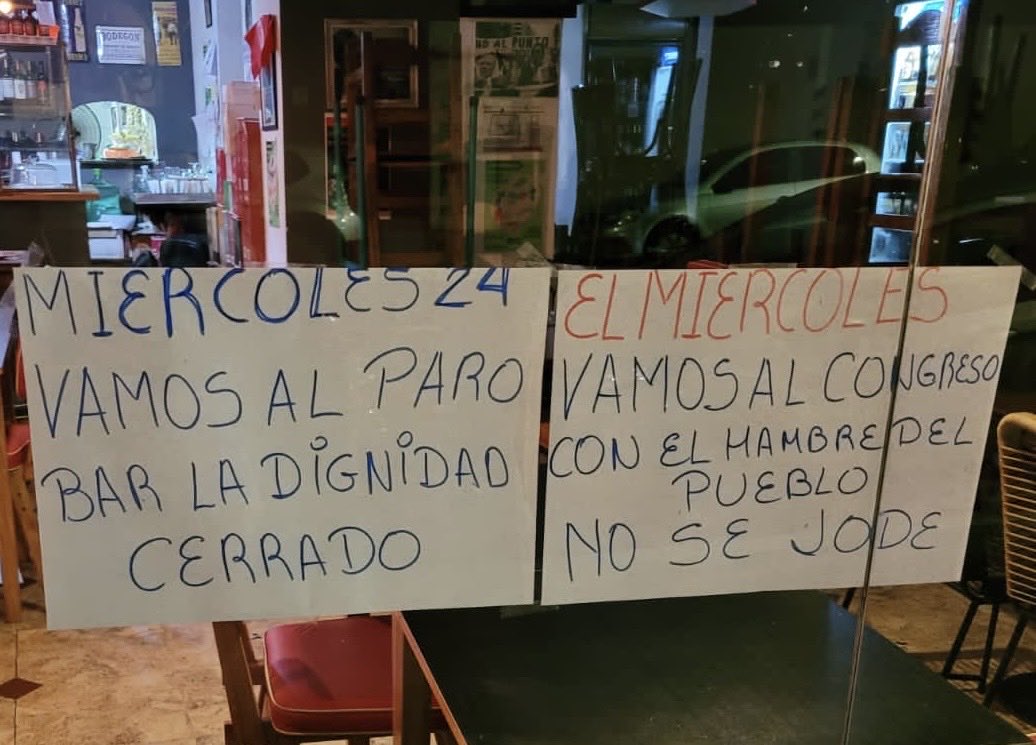 BODEGON
NO AL PUNTO
MIERCOLES 24
VAMOS AL PARO
BAR LA DIGNIDAD
CERRADO
EL MIERCOLES
VAMOS AL CONGRESO
CON EL HAMBRE DEL
PUEBLO
NO SE JODE